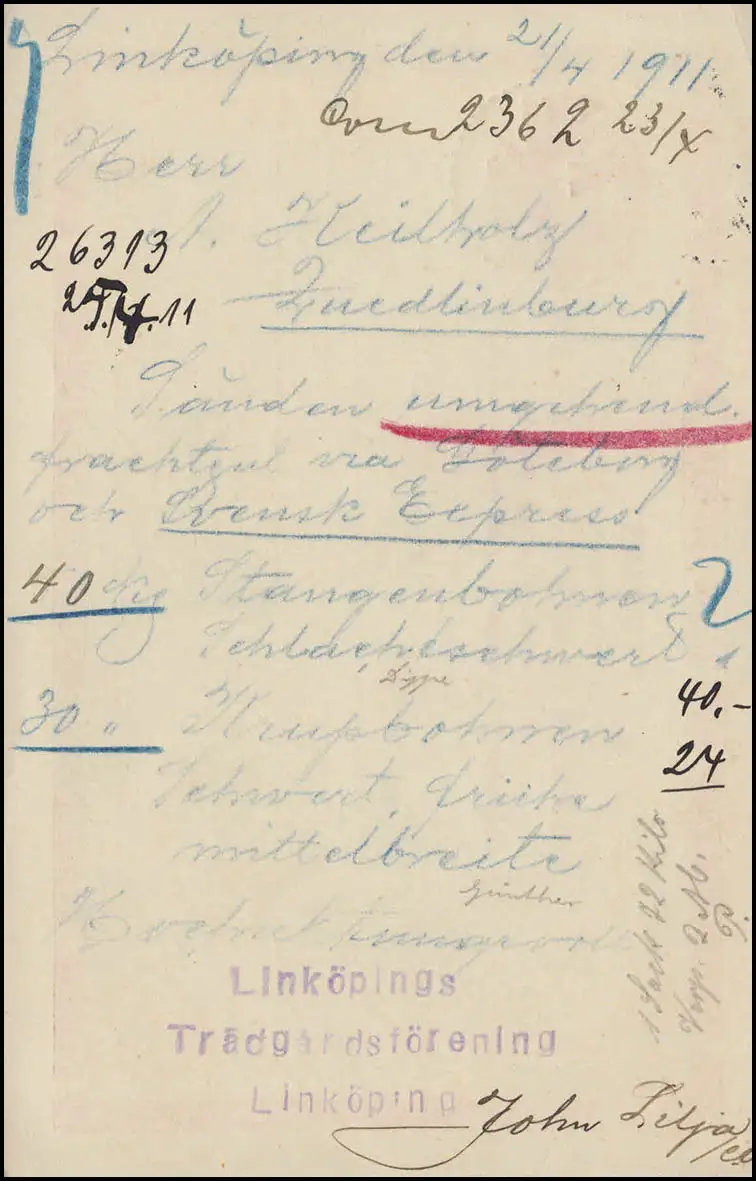 Linköping den 21/4 1911
2362 23/X
Herr
A. Keilholz
26313
Quedlinburg
Sänden umgehend.
frachtgut via Göteborg
och Svensk Express
40 Kg Stangenbohnen
Schlachtschwert
Dippe
30 " Krupbohnen
40.-
24
Schwert, frühe
mittelbreite
Günther
1 Sack 72 Kilo
Linköpings
Trädgårdsförening
Linköping
John Lilja